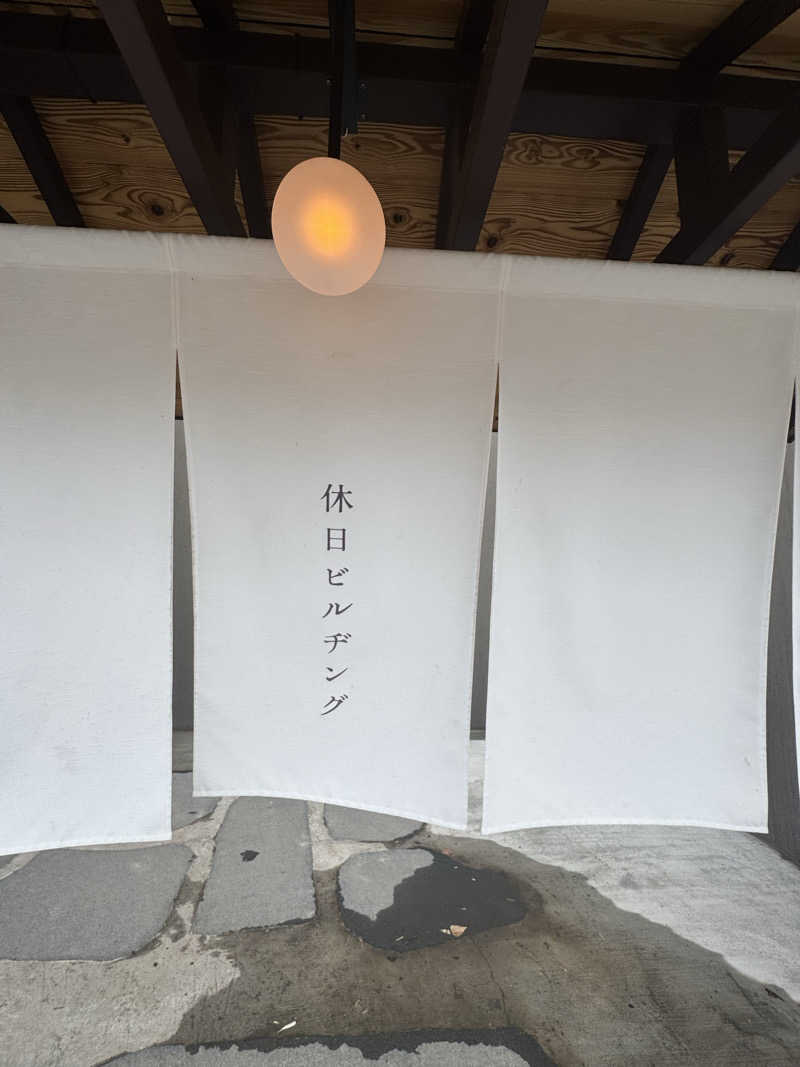 休日ビルヂング